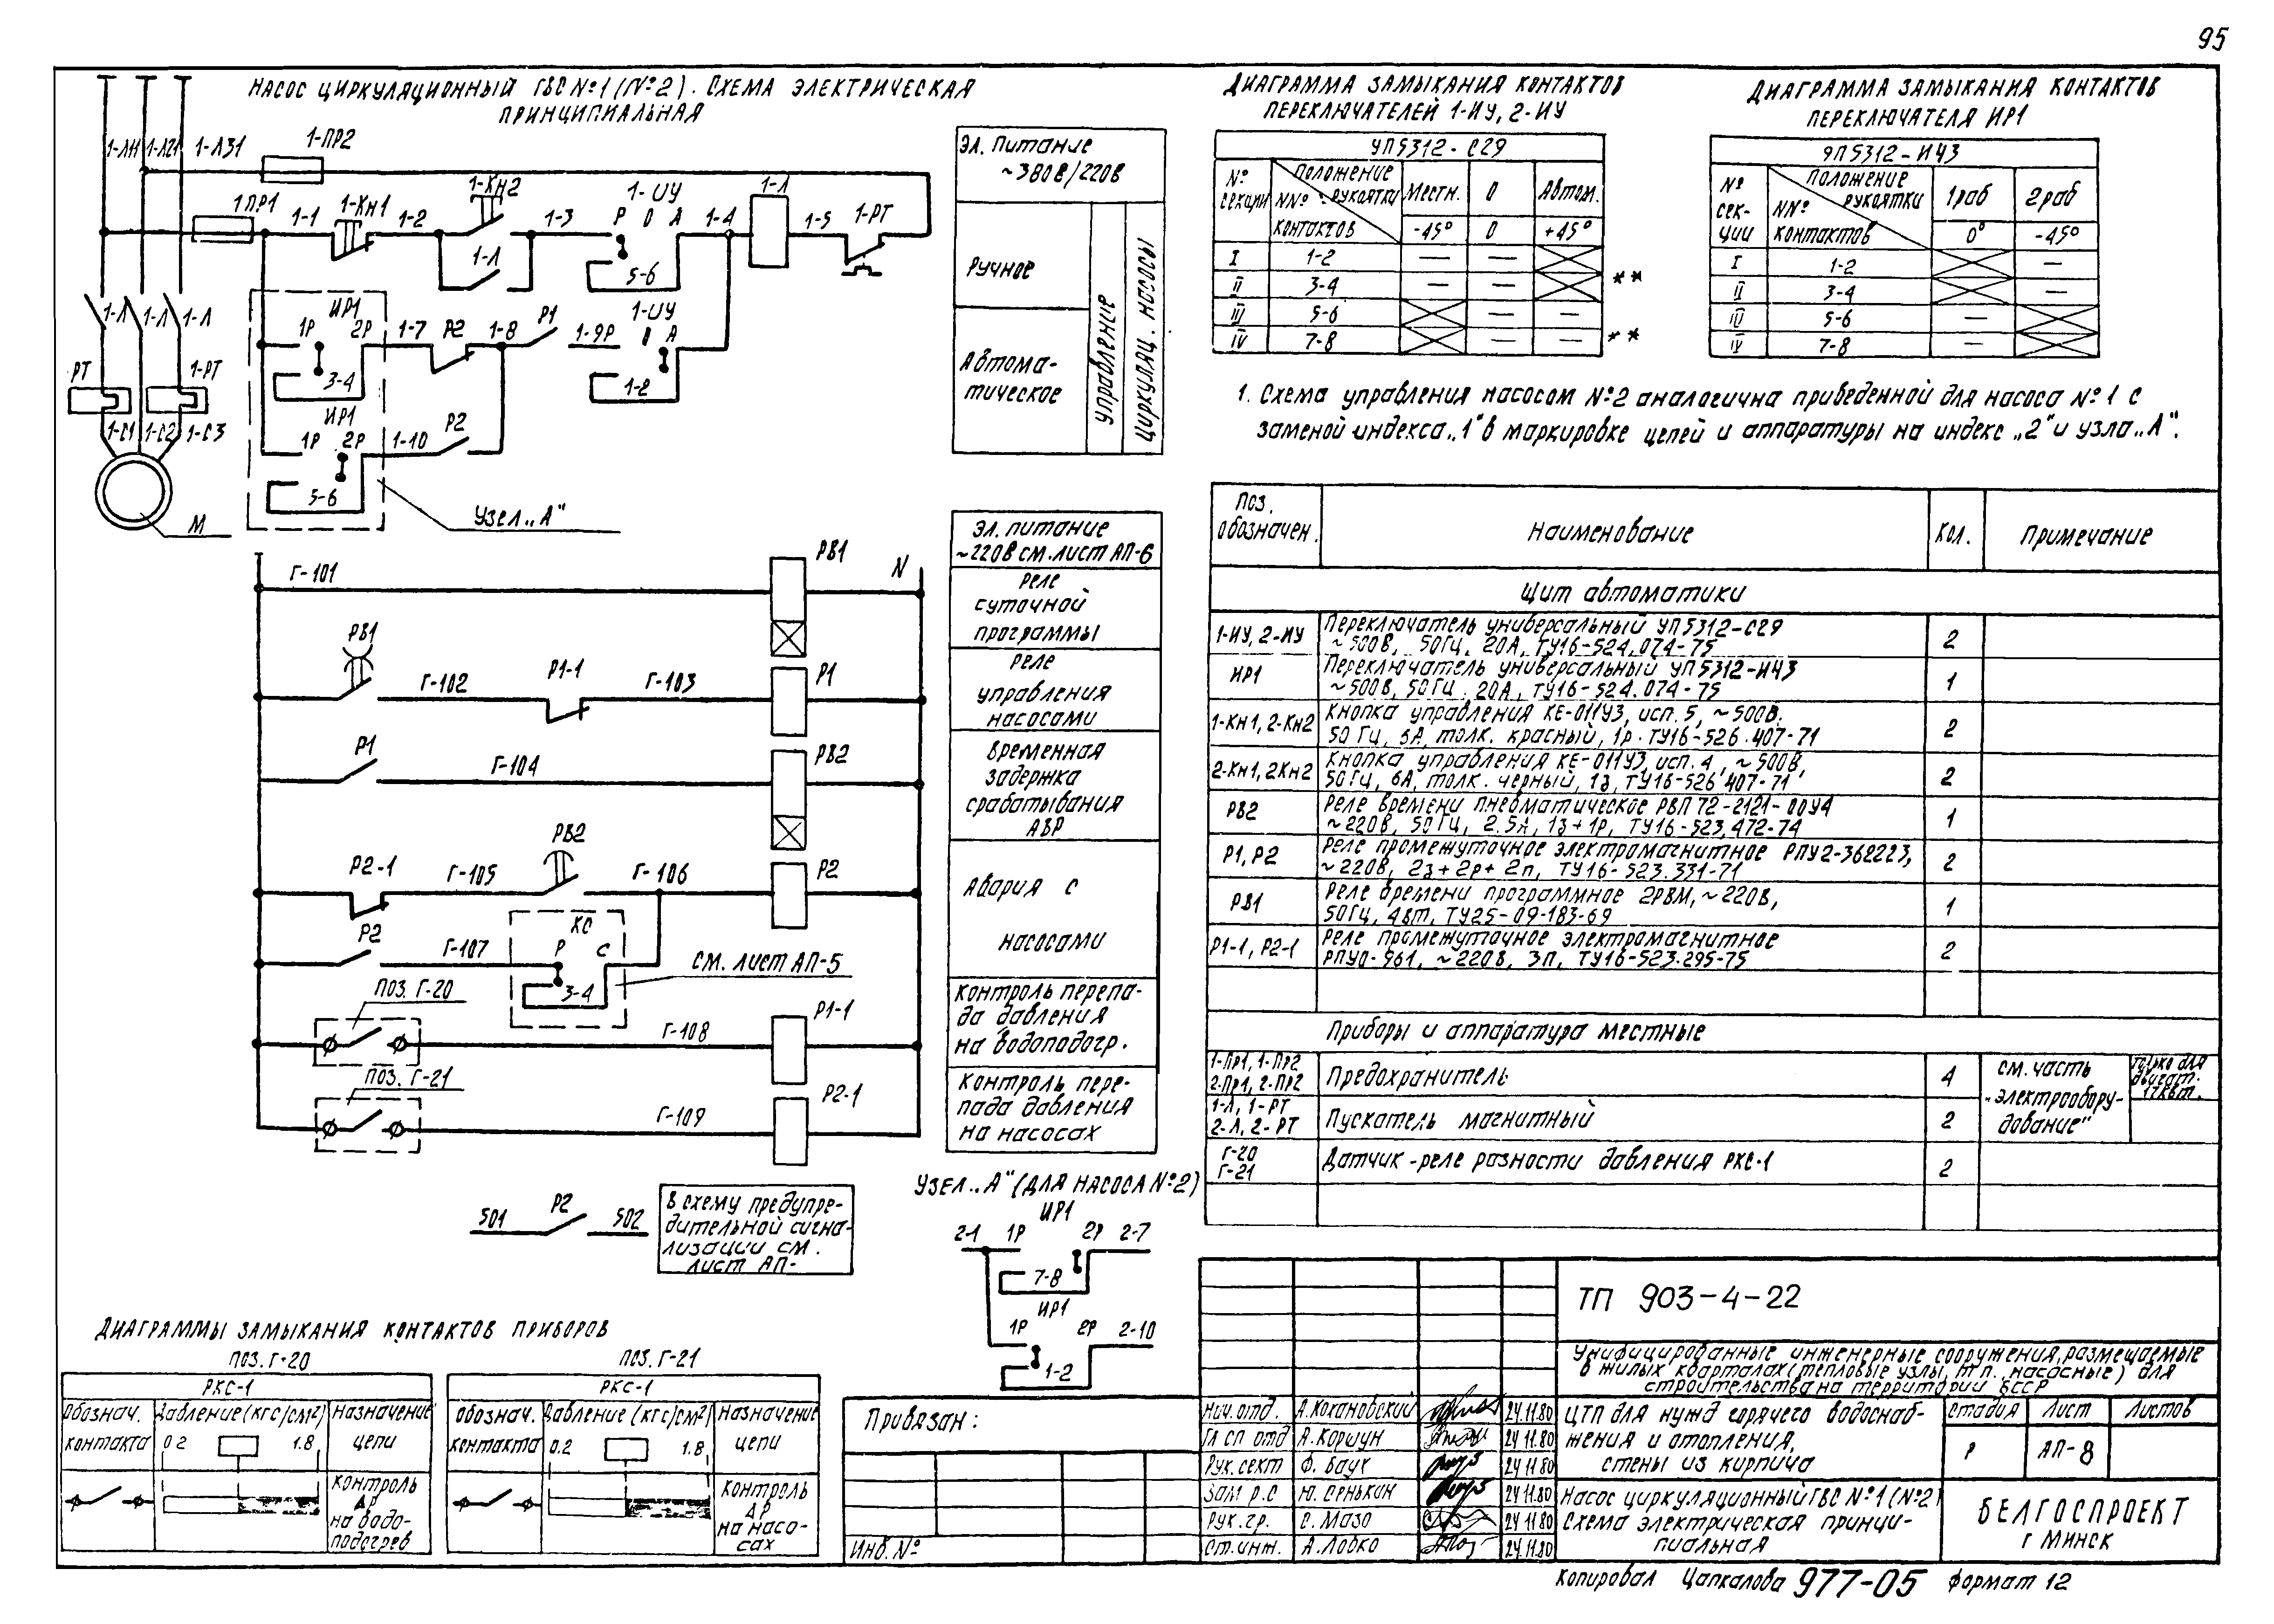 95
НАСОС ЦИРКУЛЯЦИОННЫЙ ГВС №1 (№2). СХЕМА ЭЛЕКТРИЧЕСКАЯ
ПРИНЦИПИАЛЬНАЯ
1-Л11 1-Л21 1-Л31 1-ПР2
1ПР1 1-1 1-КН1 1-2 1-КН2 1-3 1-ИУ Р О А 1-4 1-Л 1-5 1-РТ
1-Л 5-6
1-Л 1-Л 1-Л
ИР1 1Р 2Р 1-7 Р2 1-8 Р1 1-9Р 1-ИУ 0 А
3-4 1-2
РТ 1-РТ
1-С1 1-С2 1-С3
ИР1 1Р 2Р 1-10 Р2
5-6
М
УЗЕЛ „А"
ЭЛ. ПИТАНИЕ
~380В/220В
РУЧНОЕ
АВТОМА-
ТИЧЕСКОЕ
УПРАВЛЕНИЕ
ЦИРКУЛЯЦ. НАСОСЫ
ДИАГРАММА ЗАМЫКАНИЯ КОНТАКТОВ
ПЕРЕКЛЮЧАТЕЛЕЙ 1-ИУ, 2-ИУ
УП5312-С29
№ СЕКЦИИ ПОЛОЖЕНИЕ РУКОЯТКИ NN° КОНТАКТОВ МЕСТН. 0 АВТОМ.
-45° 0 +45°
I 1-2 — —
II 3-4 — — **
III 5-6 — —
IV 7-8 — — **
ДИАГРАММА ЗАМЫКАНИЯ КОНТАКТОВ
ПЕРЕКЛЮЧАТЕЛЯ ИР1
УП5312-И43
№ СЕК-ЦИИ ПОЛОЖЕНИЕ РУКОЯТКИ NN° КОНТАКТОВ 1раб 2раб
0° -45°
I 1-2 —
II 3-4 —
IV 5-6 —
IV 7-8 —
1. Схема управления насосом №2 аналогична приведенной для насоса №1 с
заменой индекса „1" в маркировке цепей и аппаратуры на индекс „2" и узла „А".
Г-101 РВ1 N
РВ1 Г-102 Р1-1 Г-103 Р1
Р1 Г-104 РВ2
Р2-1 Г-105 РВ2 Г-106 Р2
Р2 Г-107 КС Р С 3-4 СМ. ЛИСТ АП-5
ПОЗ. Г-20 Г-108 Р1-1
ПОЗ. Г-21 Г-109 Р2-1
ЭЛ. ПИТАНИЕ
~220В СМ. ЛИСТ АП-6
РЕЛЕ
СУТОЧНОЙ
ПРОГРАММЫ
РЕЛЕ
УПРАВЛЕНИЯ
НАСОСАМИ
ВРЕМЕННАЯ
ЗАДЕРЖКА
СРАБАТЫВАНИЯ
АВР
АВАРИЯ С
НАСОСАМИ
КОНТРОЛЬ ПЕРЕПА-
ДА ДАВЛЕНИЯ
НА ВОДОПОДОГР.
КОНТРОЛЬ ПЕРЕ-
ПАДА ДАВЛЕНИЯ
НА НАСОСАХ
501 Р2 502
В СХЕМУ ПРЕДУПРЕ-
ДИТЕЛЬНОЙ СИГНА-
ЛИЗАЦИИ СМ.
ЛИСТ АП-
УЗЕЛ „А" (ДЛЯ НАСОСА №2)
ИР1
2-1 1Р 2Р 2-7
7-8
ИР1
1Р 2Р 2-10
1-2
ПОЗ. ОБОЗНАЧЕН. НАИМЕНОВАНИЕ КОЛ. ПРИМЕЧАНИЕ
Щит автоматики
1-ИУ, 2-ИУ Переключатель универсальный УП5312-С29
~500В, 50Гц, 20А, ТУ16-524.074-75 2
ИР1 Переключатель универсальный УП5312-И43
~500В, 50Гц. 20А, ТУ16-524.074-75 1
1-КН1, 2-КН2 Кнопка управления КЕ-011У3, исп. 5, ~500В.
50 Гц, 6А, толк. красный, 1р. ТУ16-526.407-71 2
2-КН1, 2КН2 Кнопка управления КЕ-011У3, исп. 4, ~500В,
50Гц, 6А, толк. черный, 1з, ТУ16-526.407-71 2
РВ2 Реле времени пневматическое РВП72-2121-00У4
~220В, 50Гц, 2.5А, 1з+1р, ТУ16-523.472-74 1
Р1, Р2 Реле промежуточное электромагнитное РПУ2-362223,
~220В, 2з+2р+2п, ТУ16-523.331-71 2
РВ1 Реле времени программное 2РВМ, ~220В,
50Гц, 4Вт, ТУ25-09-183-69 1
Р1-1, Р2-1 Реле промежуточное электромагнитное
РПУ0-961, ~220В, 3п, ТУ16-523.295-75 2
Приборы и аппаратура местные
1-Пр1, 1-Пр2
2-Пр1, 2-Пр2 Предохранитель 4 см. часть „электрооборудование" только для двигат. 17квт.
1-Л, 1-РТ
2-Л, 2-РТ Пускатель магнитный 2
Г-20
Г-21 Датчик-реле разности давления РКС-1 2
ДИАГРАММЫ ЗАМЫКАНИЯ КОНТАКТОВ ПРИБОРОВ
ПОЗ. Г-20
РКС-1
ОБОЗНАЧ. КОНТАКТА ДАВЛЕНИЕ (КГС/СМ²) 0.2 1.8 НАЗНАЧЕНИЕ ЦЕПИ
КОНТРОЛЬ
ΔР
НА ВОДО-
ПОДОГРЕВ
ПОЗ. Г-21
РКС-1
ОБОЗНАЧ. КОНТАКТА ДАВЛЕНИЕ (КГС/СМ²) 0.2 1.8 НАЗНАЧЕНИЕ ЦЕПИ
КОНТРОЛЬ
ΔР
НА НАСО-
САХ
Привязан:
ИНВ. №
ТП 903-4-22
Унифицированные инженерные сооружения, размещаемые
в жилых кварталах (тепловые узлы, тп., насосные) для
строительства на территории БССР
Нач. отд. А. Кохановский 24.11.80
Гл сп отд А. Коршун 24.11.80
Рук. сект Ф. Баук 24.11.80
Зам р.с Ю. Сенькан 24.11.80
Рук. гр. С. Мазо 24.11.80
Ст. инж. А. Лобко 24.11.80
ЦТП для нужд горячего водоснаб-
жения и отопления,
стены из кирпича
Стадия Лист Листов
Р АП-8
Насос циркуляционный ГВС №1 (№2)
Схема электрическая принци-
пиальная
БЕЛГОСПРОЕКТ
г МИНСК
Копировал Цапкалова 977-05 формат 12